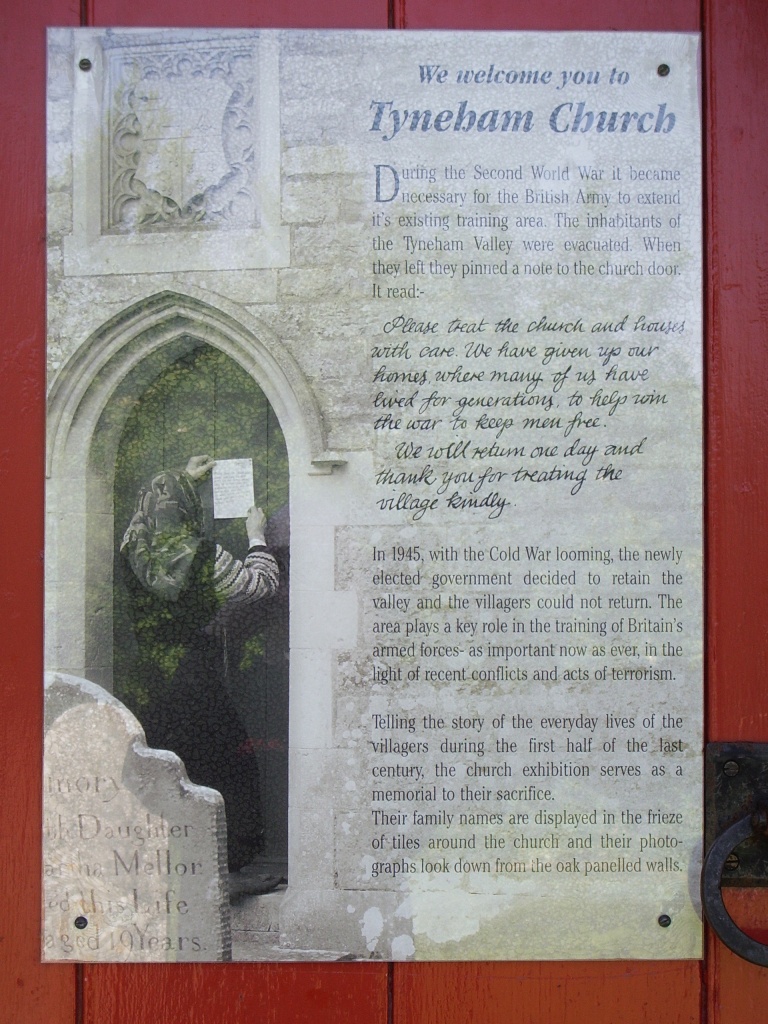 We welcome you to
Tyneham Church
During the Second World War it became
necessary for the British Army to extend
it's existing training area. The inhabitants of
the Tyneham Valley were evacuated. When
they left they pinned a note to the church door.
It read:-
Please treat the church and houses
with care. We have given up our
homes, where many of us have
lived for generations, to help win
the war to keep men free.
We will return one day and
thank you for treating the
village kindly.
In 1945, with the Cold War looming, the newly
elected government decided to retain the
valley and the villagers could not return. The
area plays a key role in the training of Britain's
armed forces- as important now as ever, in the
light of recent conflicts and acts of terrorism.
Telling the story of the everyday lives of the
villagers during the first half of the last
century, the church exhibition serves as a
memorial to their sacrifice.
Their family names are displayed in the frieze
of tiles around the church and their photo-
graphs look down from the oak panelled walls.
Daughter
Mellor
this Life
aged 19 Years.